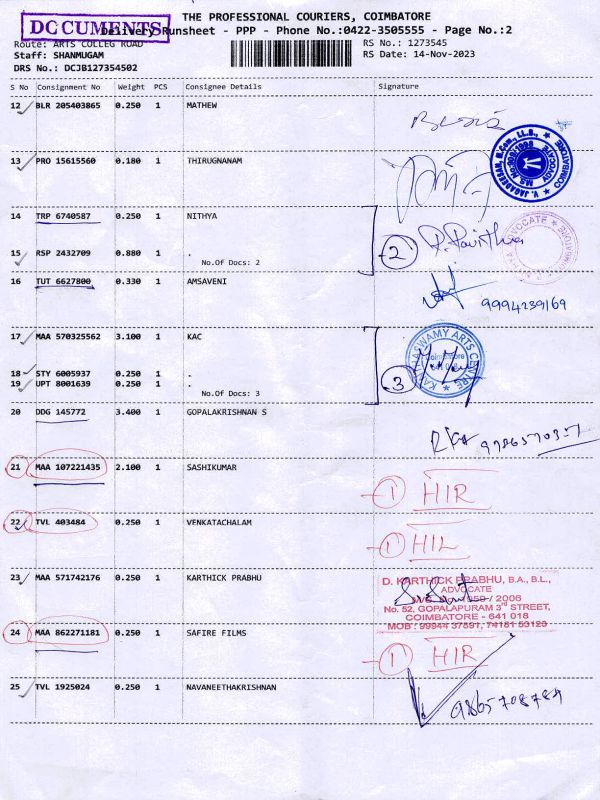 DOCUMENTS
THE PROFESSIONAL COURIERS, COIMBATORE
Delivery Runsheet - PPP - Phone No.:0422-3505555 - Page No.:2
Route: ARTS COLLEG ROAD
RS No.: 1273545
Staff: SHANMUGAM
RS Date: 14-Nov-2023
DRS No.: DCJB127354502
S No Consignment No Weight PCS Consignee Details Signature
12 BLR 205403865 0.250 1 MATHEW
13 PRO 15615560 0.180 1 THIRUGNANAM
V. JAGADEESAN, B.Com., LL.B., ADVOCATE COIMBATORE
14 TRP 6740587 0.250 1 NITHYA
15 RSP 2432709 0.880 1 .
No.Of Docs: 2
2
ADVOCATE
16 TUT 6627800 0.330 1 AMSAVENI
9994239169
17 MAA 570325562 3.100 1 KAC
18 STY 6005937 0.250 1 .
19 UPT 8001639 0.250 1 .
No.Of Docs: 3
3
ARTS CENTRE
20 DDG 145772 3.400 1 GOPALAKRISHNAN S
21 MAA 107221435 2.100 1 SASHIKUMAR
1 HIR
22 TVL 403484 0.250 1 VENKATACHALAM
1 HIL
23 MAA 571742176 0.250 1 KARTHICK PRABHU
D. KARTHICK PRABHU, B.A., B.L.,
ADVOCATE
/ 2006
No. 52, GOPALAPURAM 3rd STREET,
COIMBATORE - 641 018
MOB : 99944 37591, 74181 53123
24 MAA 862271181 0.250 1 SAFIRE FILMS
1 HIR
25 TVL 1925024 0.250 1 NAVANEETHAKRISHNAN
9865708784